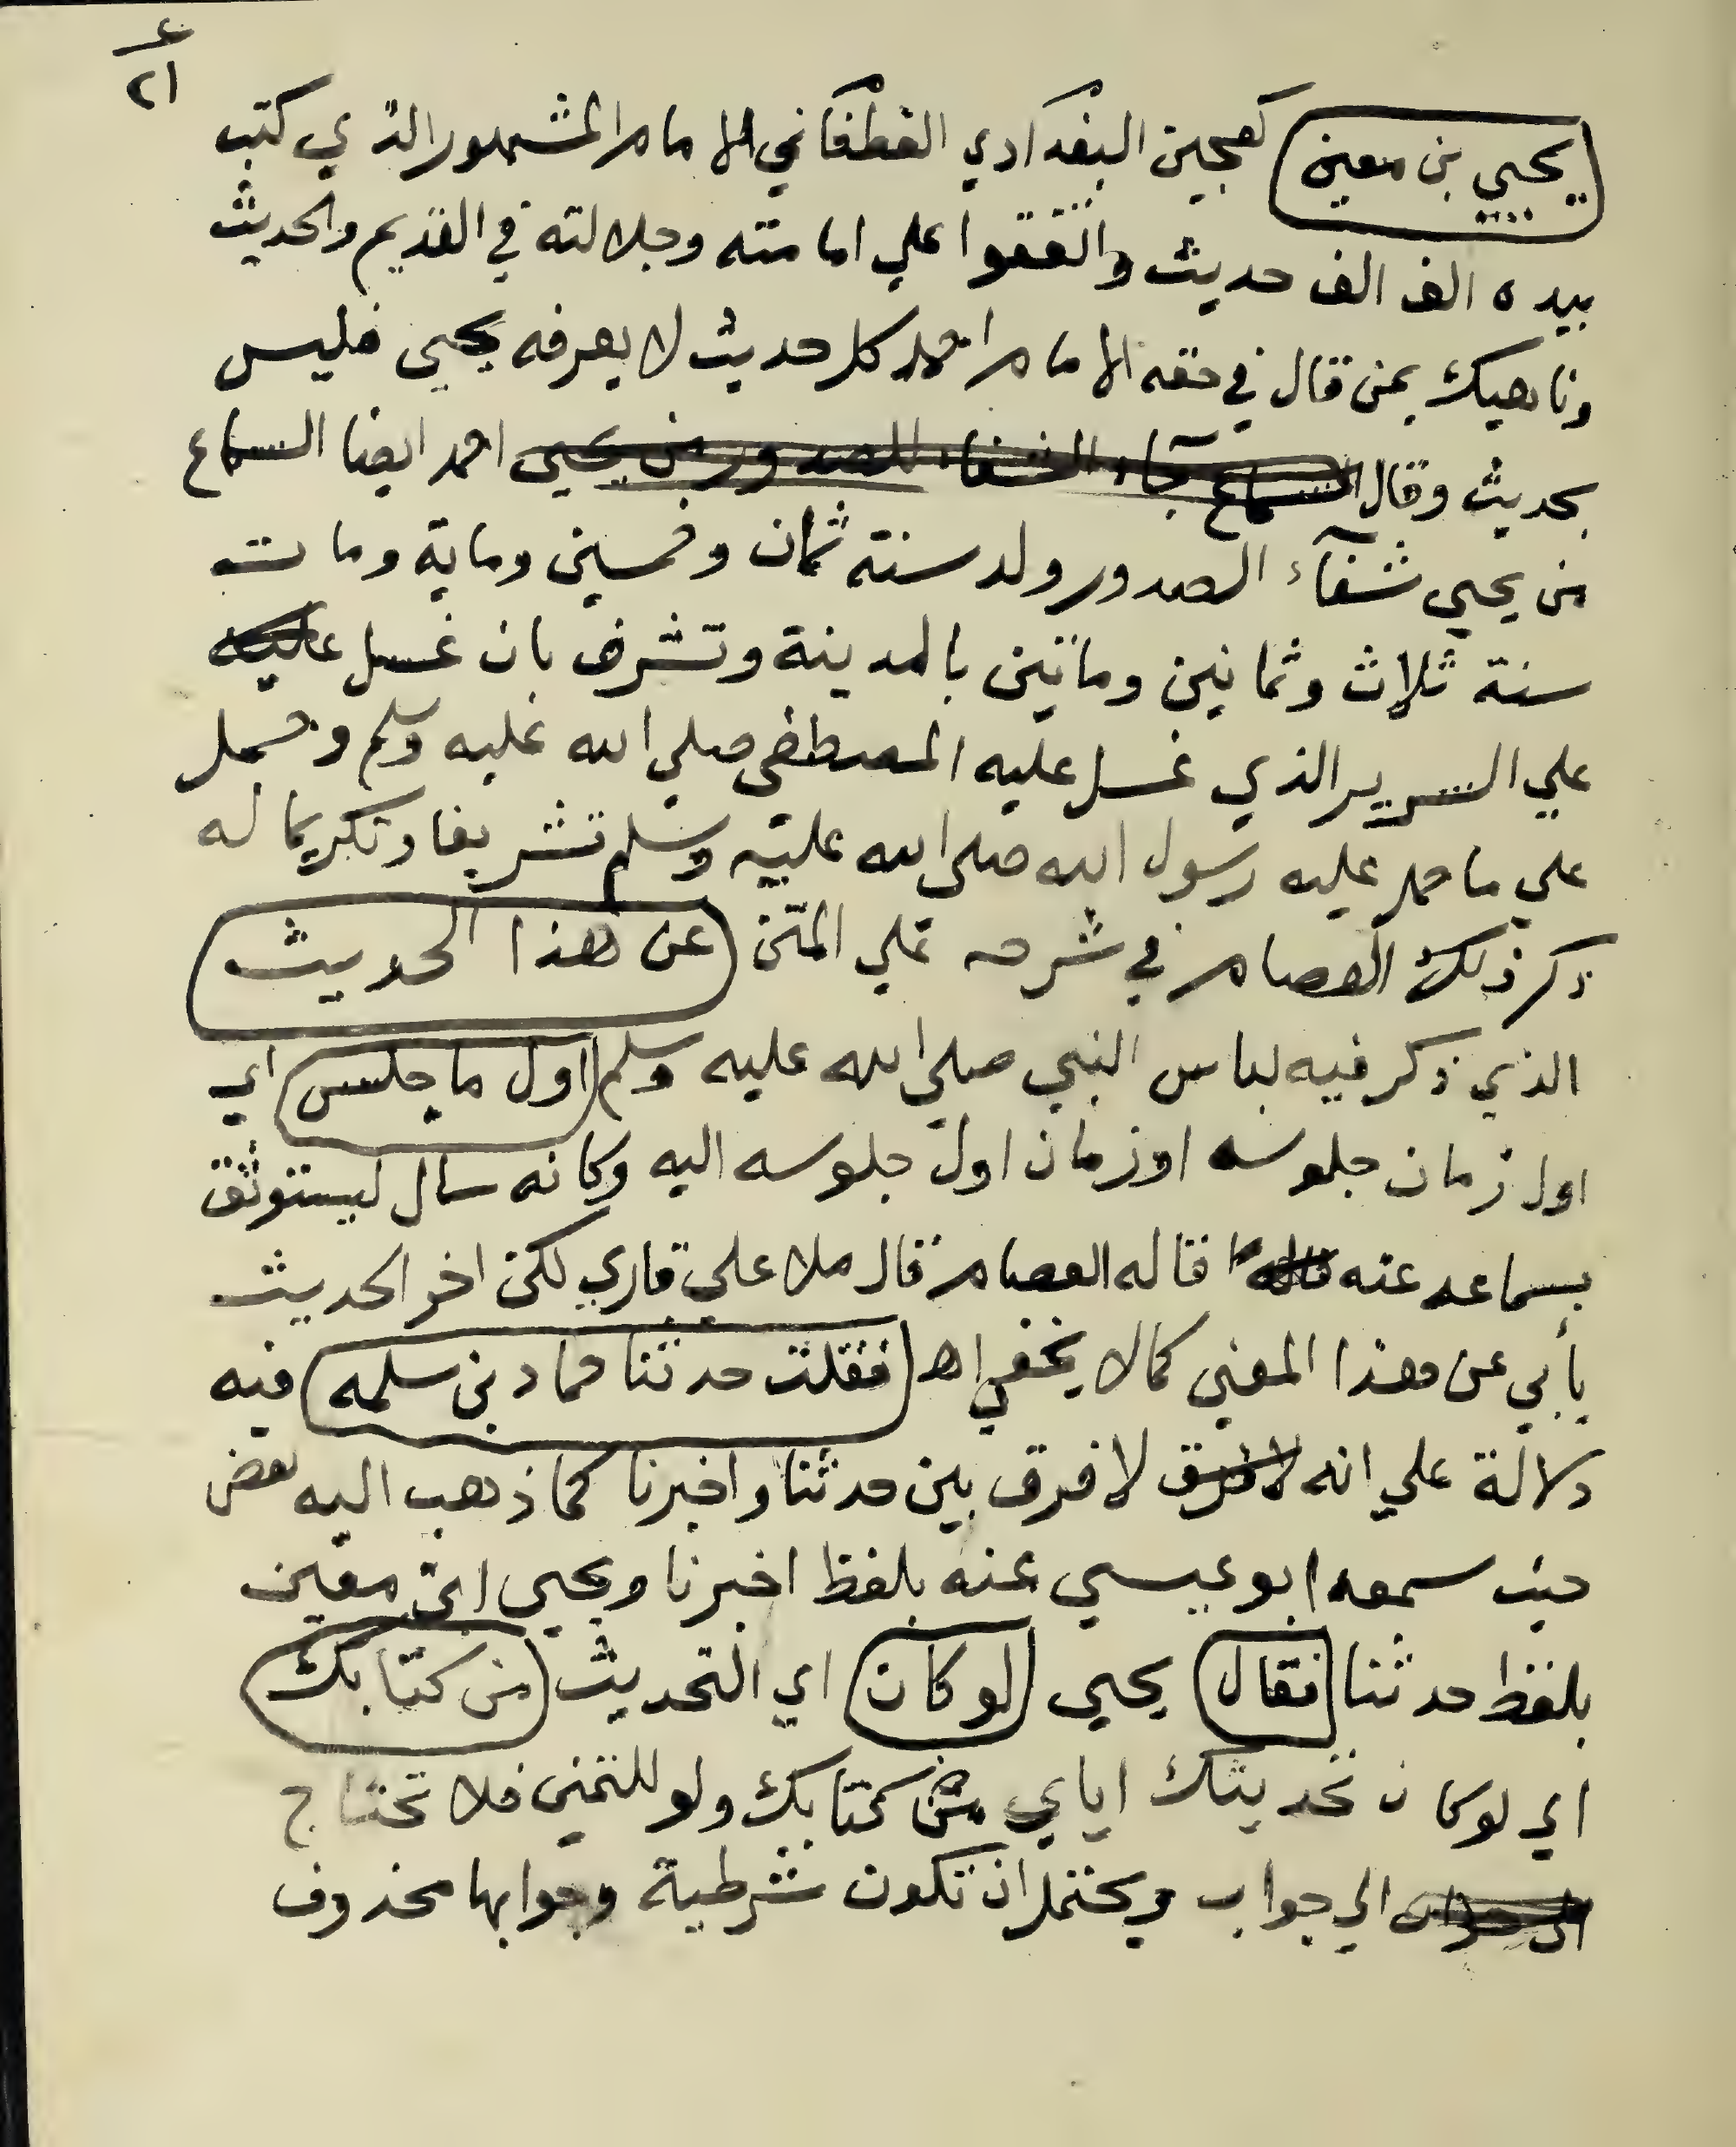 ع
٢١
يحيي بن معين كمعين البغدادي الغطفاني الامام المشهور الذي كتب
بيده الف الف حديث واتفقوا علي امامته وجلالته في القديم والحديث
وناهيك بمن قال في حقه الامام احمد كل حديث لا يعرفه يحيي فليس
بحديث وقال السماع احمد ايضا السماع
من يحيي شفآء الصدور ولد سنة ثمان وخمسين وماية ومات
سنة ثلاث وثمانين وماتين بالمدينة وتشرف بان غسل عليه
علي السرير الذي غسل عليه المصطفي صلي الله عليه وسلم وحمل
علي ما حمل عليه رسول الله صلي الله عليه وسلم تشريفا وتكريما له
ذكر ذلك العصام في شرحه علي المتن عن هذا الحديث
الذي ذكر فيه لباس النبي صلي الله عليه وسلم اول ما جلس اي
اول زمان جلوسه او زمان اول جلوسه اليه وكانه سال ليستوثق
بسماعه عنه قاله العصام قال ملا علي قاري لكن اخر الحديث
يأبي عن هذا المعني كما لا يخفي اه فقلت حدثنا حماد بن سلمه فيه
دلالة علي انه لا فرق لا فرق بين حدثنا واخبرنا كما ذهب اليه بعض
حيث سمعه ابو عيسي عنه بلفظ اخبرنا ويحيي ابن معين
بلفظ حدثنا فقال يحيي لو كان اي التحديث من كتابك
اي لو كان تحديثك اياي من كتابك ولو للتمني فلا تحتاج
الي جواب الي جواب ويحتمل ان تكون شرطية وجوابها محذوف